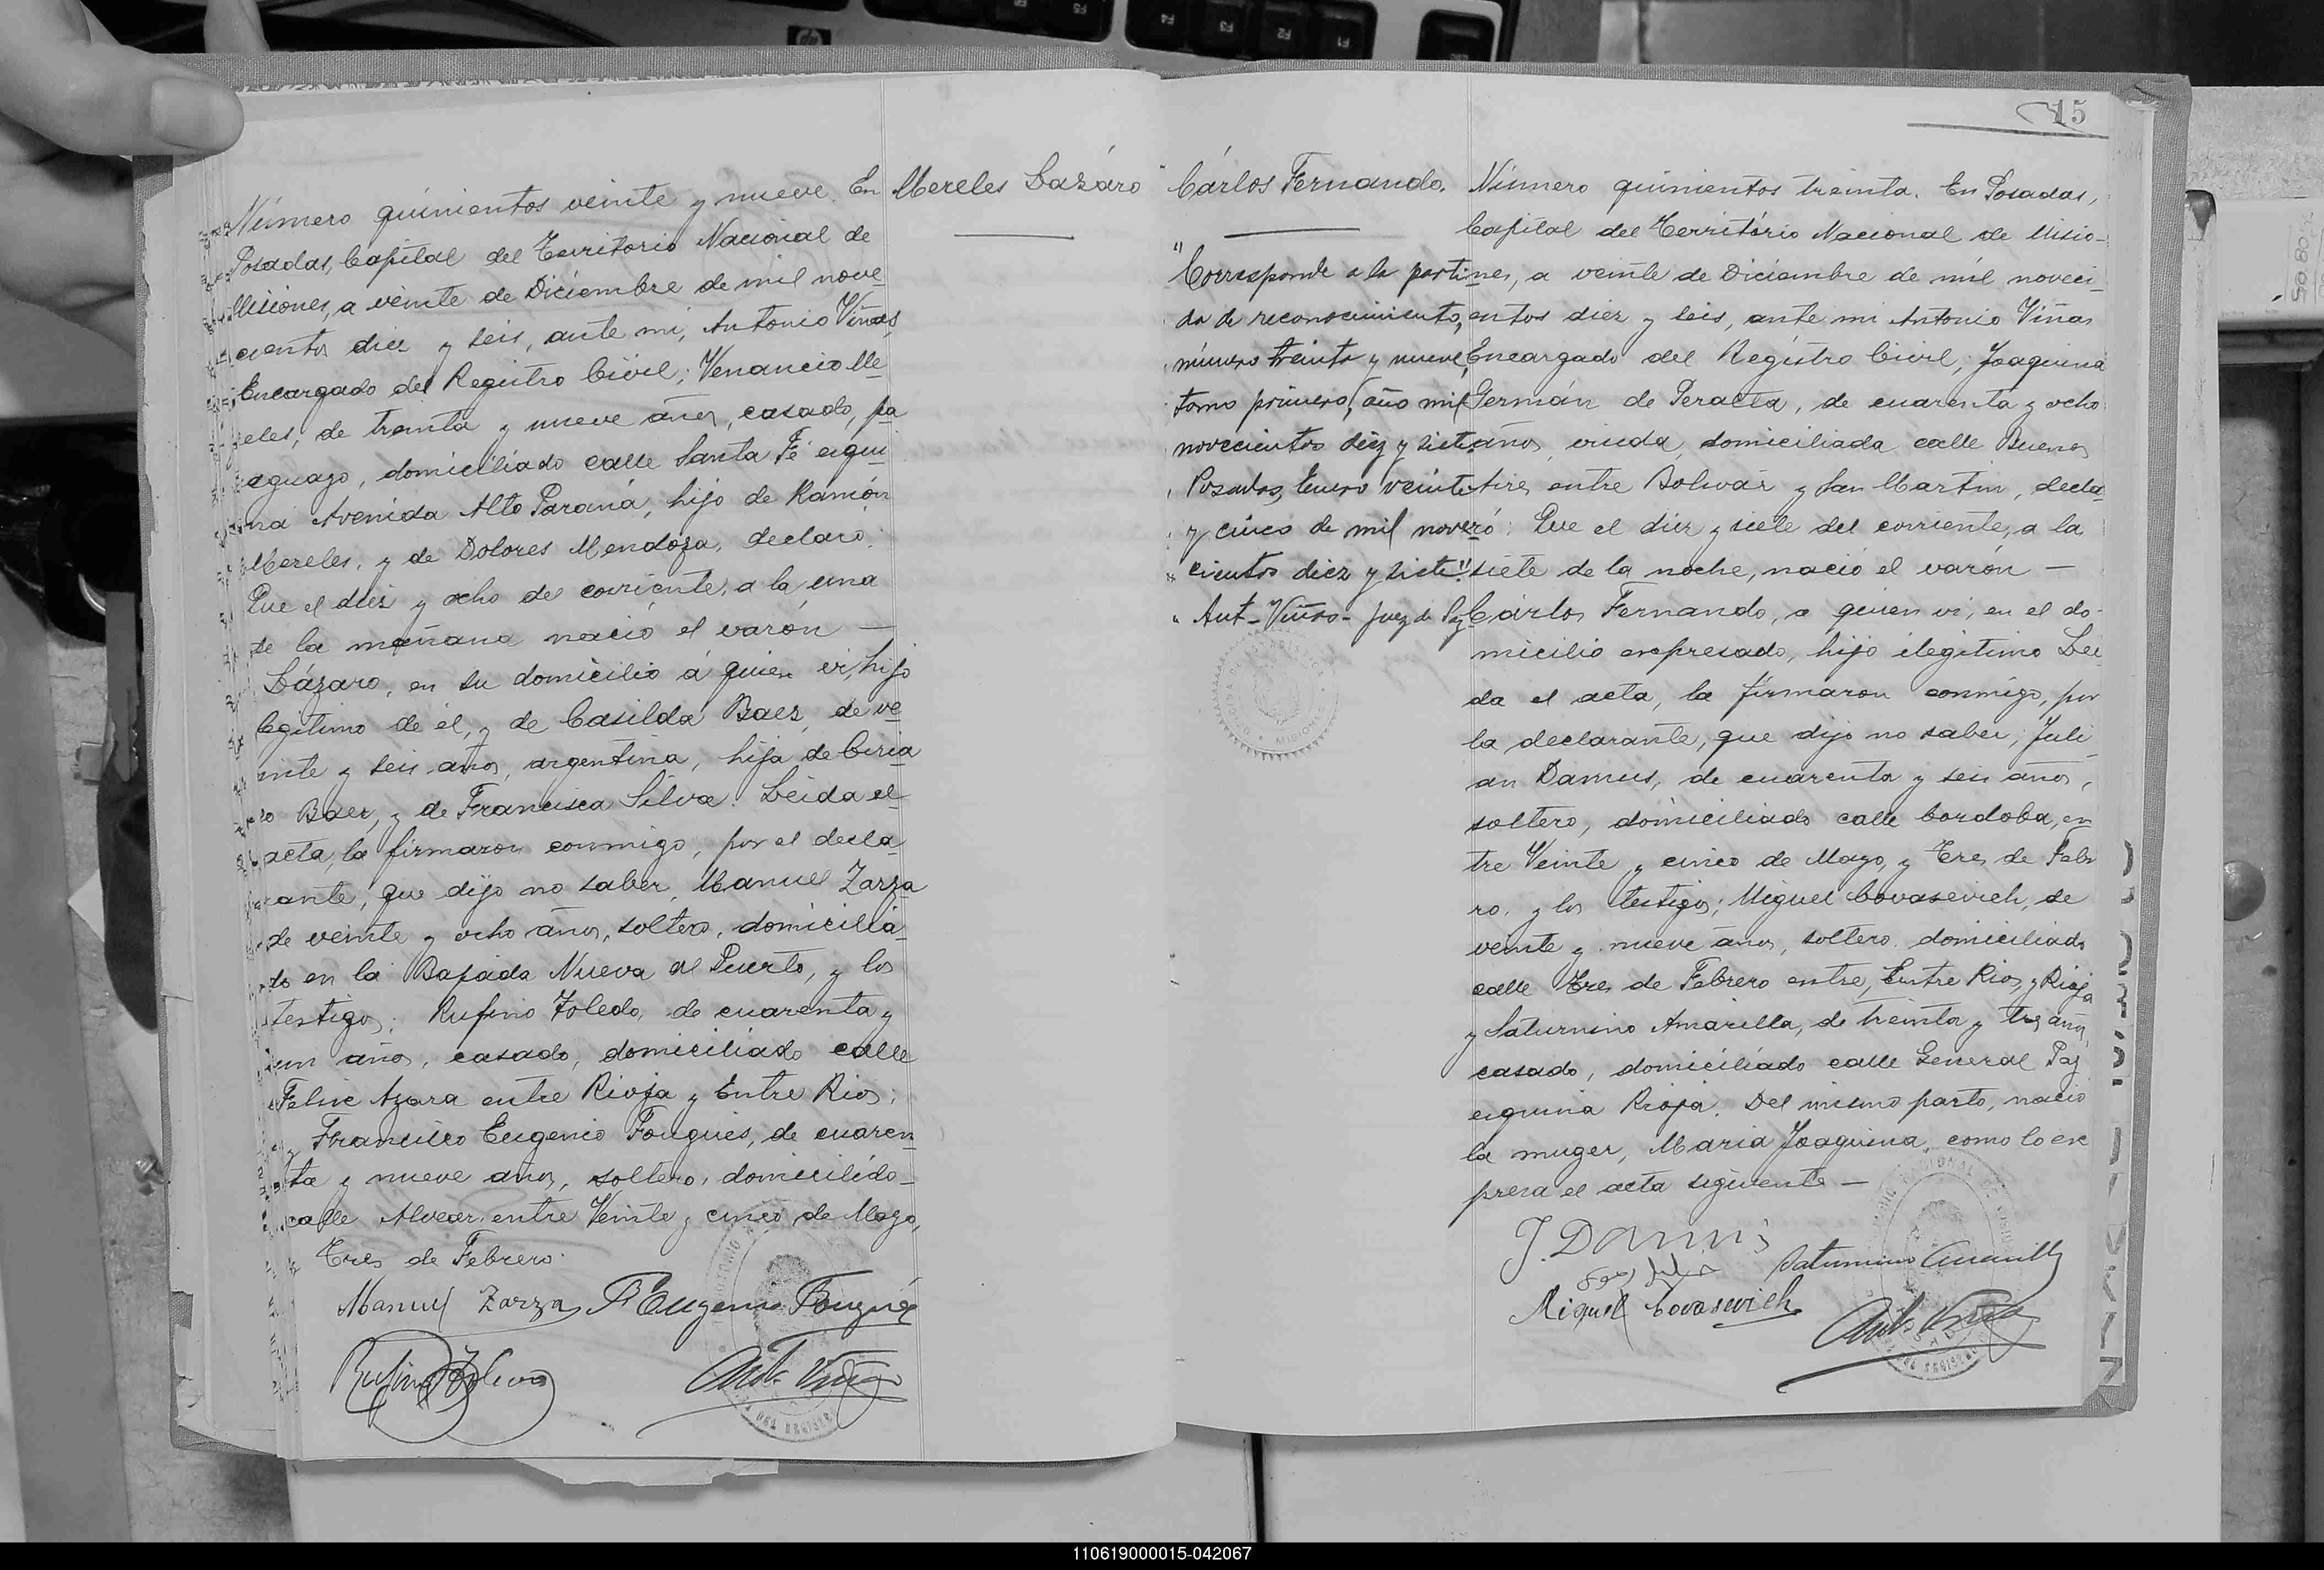 Mereles Lazáro
Número quinientos veinte y nueve. En
Posadas, Capital del Territorio Nacional de
Misiones, a veinte de Diciembre de mil nove
cientos diez y seis, ante mi, Antonio Viñas,
Encargado del Registro Civil; Venancio Me
reles, de treinta y nueve años, casado, pa
raguayo, domiciliado calle Santa Fé esqui
na Avenida Alto Paraná, hijo de Ramón
Mereles, y de Dolores Mendoza, declaró:
Que el diez y ocho del corriente, a la una
de la mañana nació el varón —
Lázaro, en su domicilio á quien vi, hijo
legitimo de él, y de Casilda Baez, de ve
inte y seis años, argentina, hija de Ciria
co Baez, y de Francisca Silva. Leida el
acta, la firmaron conmigo, por el decla
rante, que dijo no saber, Manuel Zarza
de veinte y ocho años, soltero, domicilia
do en la Bajada Nueva al Puerto, y los
testigos; Rufino Toledo, de cuarenta y
un años, casado, domiciliado calle
Felix Azara entre Rioja y Entre Rios;
y Francisco Eugenio Fougues, de cuaren
ta y nueve años, soltero, domicilido
calle Alvear, entre Veinte y cinco de Mayo,
Tres de Febrero.
Manuel Zarza F Eugenio Fougués
Rufino Toledo Ant. Viñas
15
Cárlos Fernando.
"Corresponde a la parti
da de reconocimiento,
número treinta y nueve,
tomo primero, año mil
novecientos diez y siete.
Posadas, Enero veinte
y cinco de mil nove
cientos diez y siete."
" Ant. Viñas - Juez de Paz
Número quinientos treinta. En Posadas,
Capital del Território Nacional de Misio-
nes, a veinte de Diciembre de mil noveci
entos diez y seis, ante mi Antonio Viñas
Encargado del Registro Civil, Joaquina
Germán de Peralta, de cuarenta y ocho
años, viuda, domiciliada calle Buenos
Aires entre Bolivar y San Martin, decla
ró: Que el diez y siete del corriente, a la
siete de la noche, nació el varón —
Cárlos Fernando, a quien vi, en el do-
micilio expresado, hijo ilegitimo Lei
da el acta, la firmaron conmigo, por
la declarante, que dijo no saber, Juli
an Damus, de cuarenta y seis años,
soltero, domiciliado calle Cordoba, en
tre Veinte y cinco de Mayo, y Tres de Febre
ro. y los testigos; Miguel Covasevich, de
veinte y nueve años, soltero, domiciliado
calle Tres de Febrero entre, Entre Rios y Rioja
y Saturnino Amarilla, de treinta y tres años,
casado, domiciliado calle General Paz
esquina Rioja. Del mismo parto, nació
la muger, Maria Joaquina, como lo ex
presa el acta siguiente —
J. Damus Saturnino Amarilla
Miguel Covasevich Ant. Viñas
110619000015-042067